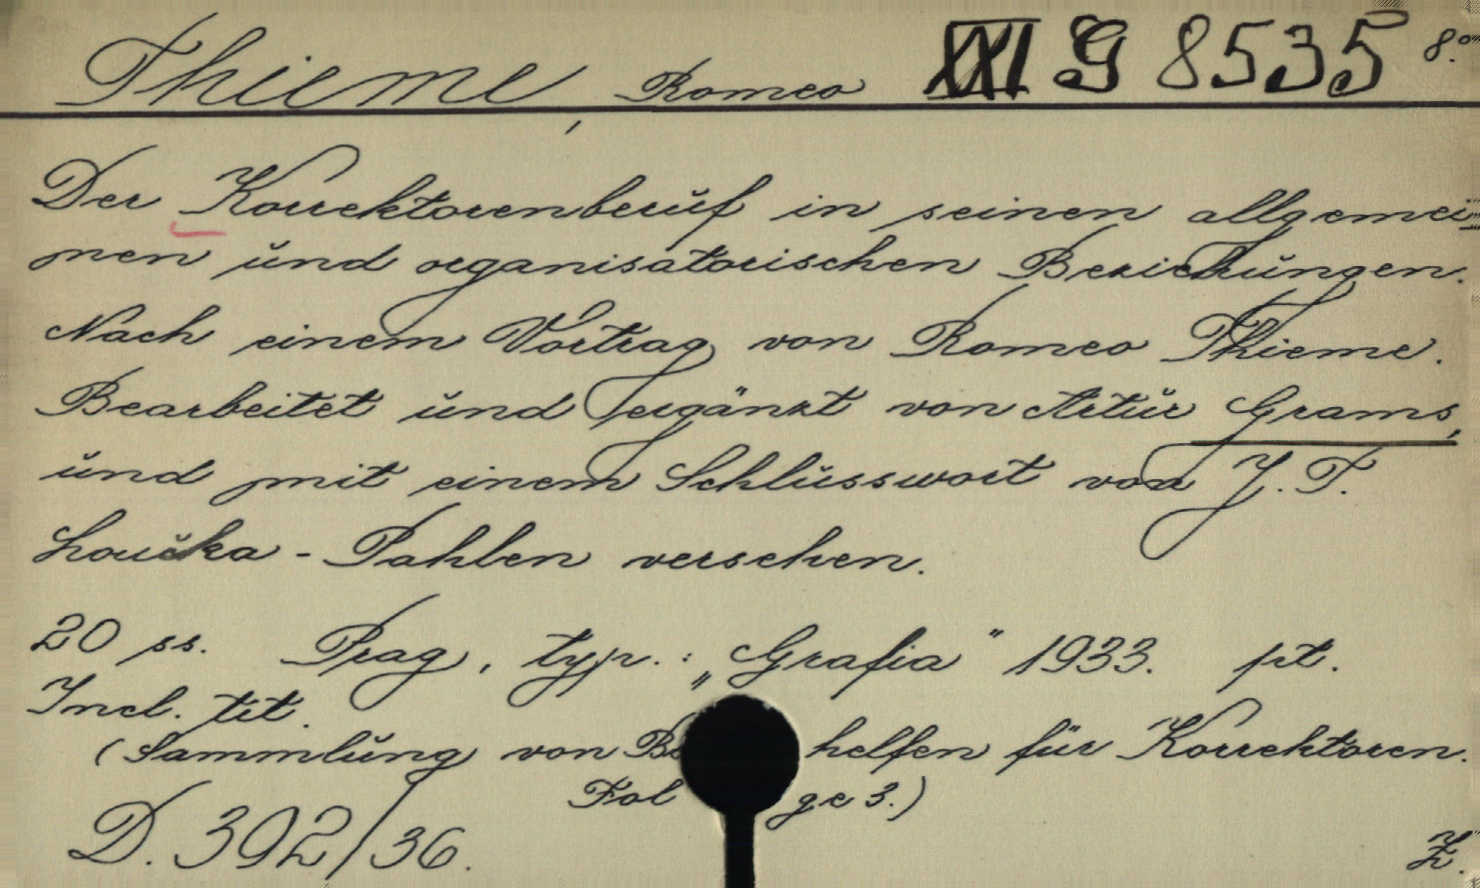 Thieme, Romeo XXI G 8535 8°
Der Korrektorenberuf in seinen allgemei-
nen und organisatorischen Beziehungen.
Nach einem Vortrag von Romeo Thieme.
Bearbeitet und ergänzt von Artur Grams,
und mit einem Schlusswort von J. T.
Loučka - Pahlen versehen.
20 ss. Prag, typ.: „Grafia" 1933. pt.
Incl. tit.
(Sammlung von Behelfen für Korrektoren.
Folge 3.)
D. 392/36.